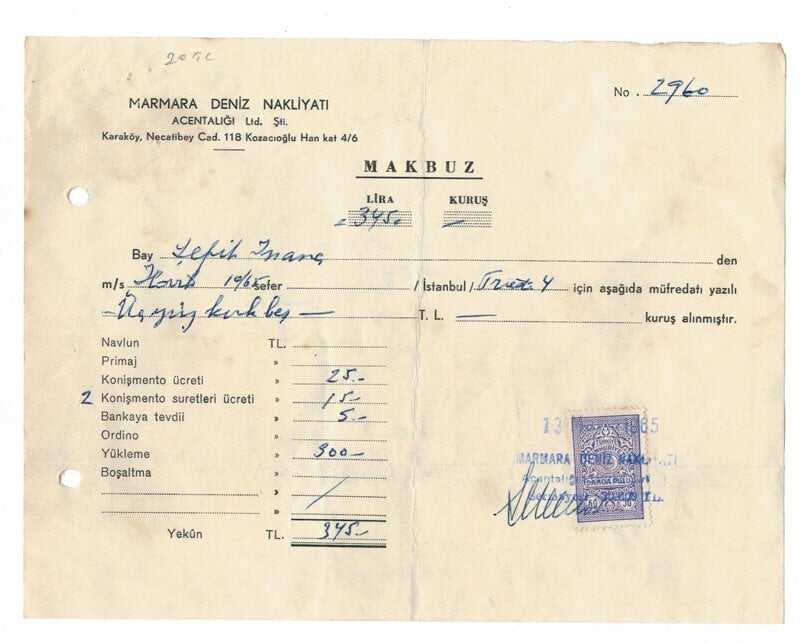 No. 2960
MARMARA DENİZ NAKLİYATI
ACENTALIĞI Ltd. Şti.
Karaköy, Necatibey Cad. 118 Kozacıoğlu Han kat 4/6
MAKBUZ
LİRA KURUŞ
345.- —
Bay Şefik İnanç den
m/s 1965 sefer / İstanbul / için aşağıda müfredatı yazılı
Üçyüz kırk beş — T. L. — kuruş alınmıştır.
Navlun TL.
Primaj »
Konişmento ücreti » 25.-
2 Konişmento suretleri ücreti » 15.-
Bankaya tevdii » 5.-
Ordino »
Yükleme » 300.-
Boşaltma »
»
»
Yekûn TL. 345.-
MARMARA DENİZ NAKLİYATI
Acentalığı
DAMGA PULU